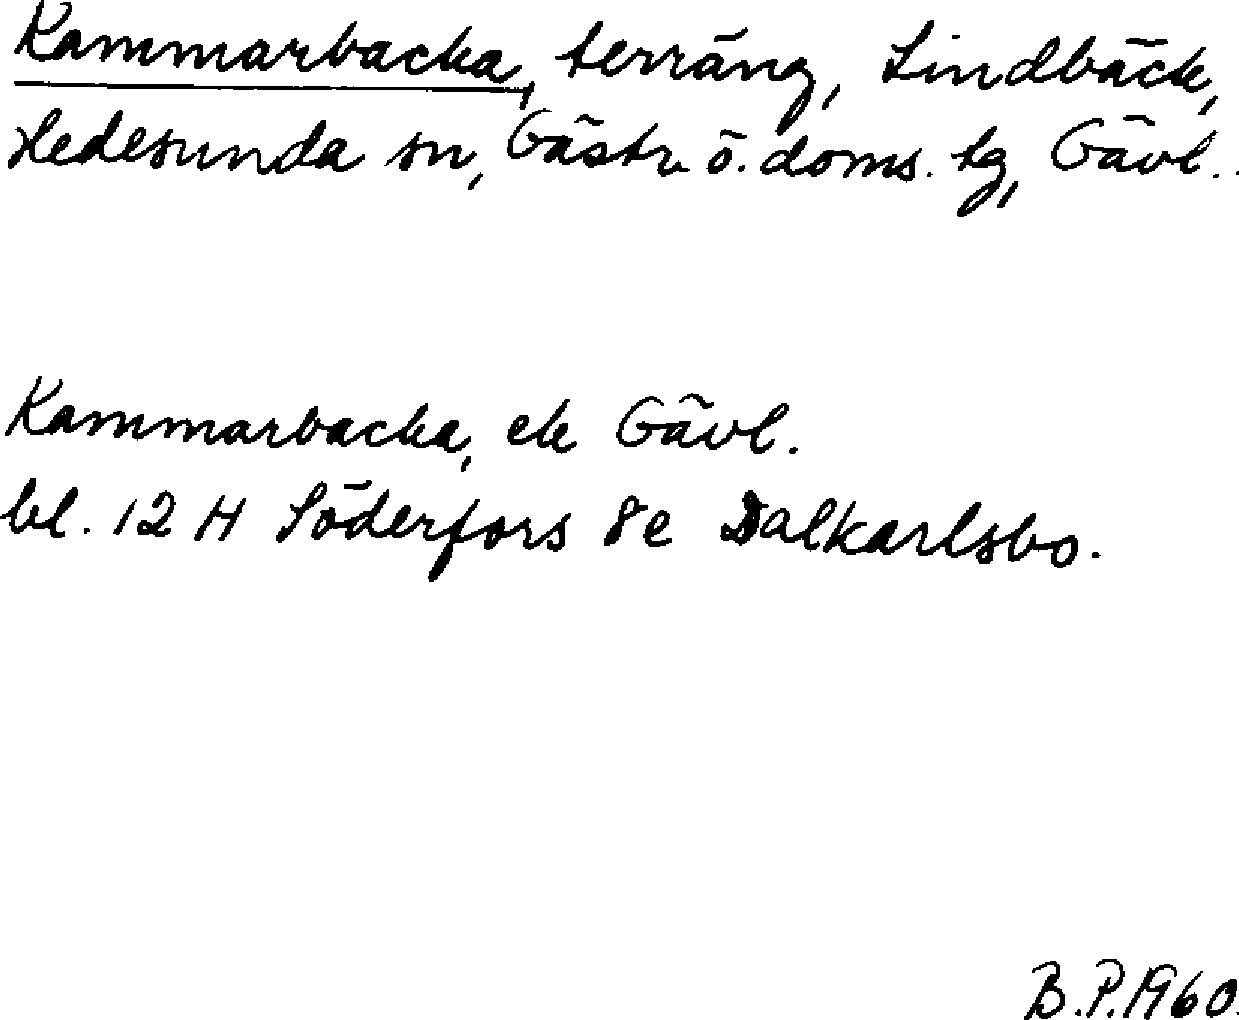 Kammarbacka, terräng, Lindbäck,
Hedesunda sn, Gästr. ö. doms. tg, Gävl..
Kammarbacka, ek Gävl.
bl. 12 H Söderfors 8e Dalkarlsbo.
B.P. 1960.